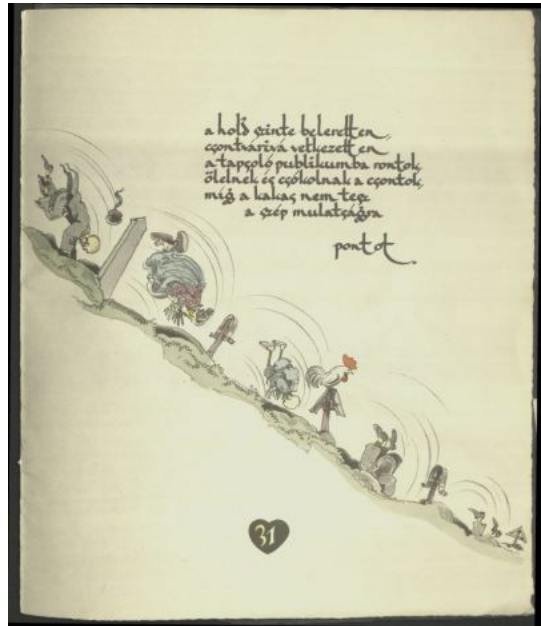 a hold szinte beleretten,
csontvárivá vetkezetten
a tapsoló publikumba rontok,
ölelnek és csókolnak a csontok,
míg a kakas nem tesz
a szép mulatságra
pontot.
31